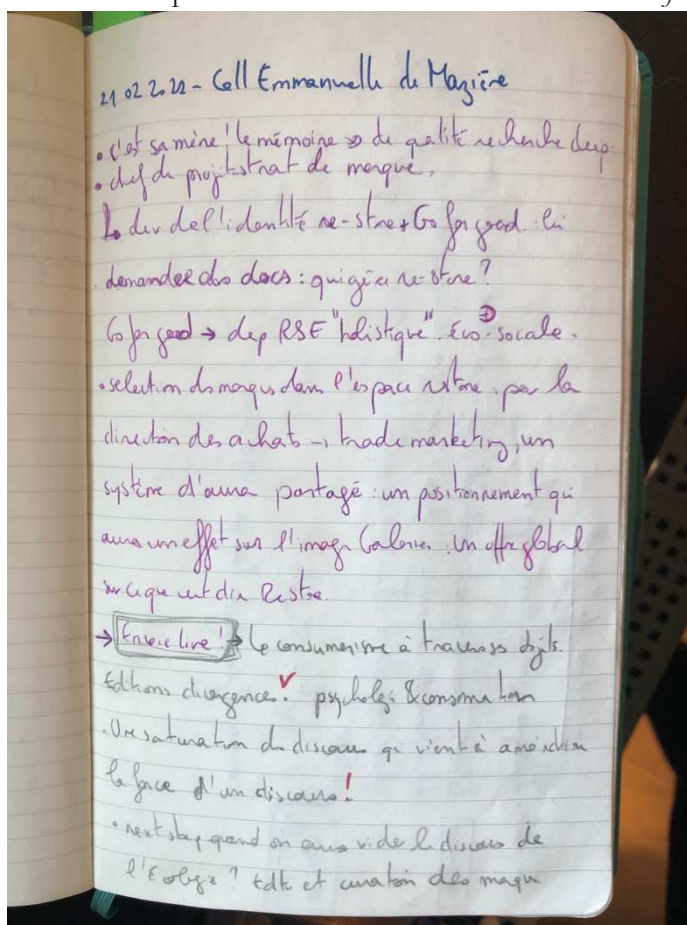 21 02 2022 - Call Emmanuelle de Mazière
• c'est sa mère! le mémoire de qualité recherche
• chef de projet strat de marque,
↳ dev de l'identité re-store + Go for good. lui
demander des docs : qui gère re-store ?
Go for good → dep RSE "holistique". Éco-sociale.
• selection des marques dans l'espace restore par la
direction des achats → trade marketing, un
système d'aura partagé : un positionnement qui
aura un effet sur l'image Galeries. Un offre global
sur ce que veut dire Restore.
→ Envoie livre! → Le consumérisme à travers objets.
Editions divergences. psychologie & consommation
• Une saturation du discours qui vient à amoindrir
la force d'un discours!
• next step quand on aura vidé le discours de
l'Écologie ? Edle et curation des marques